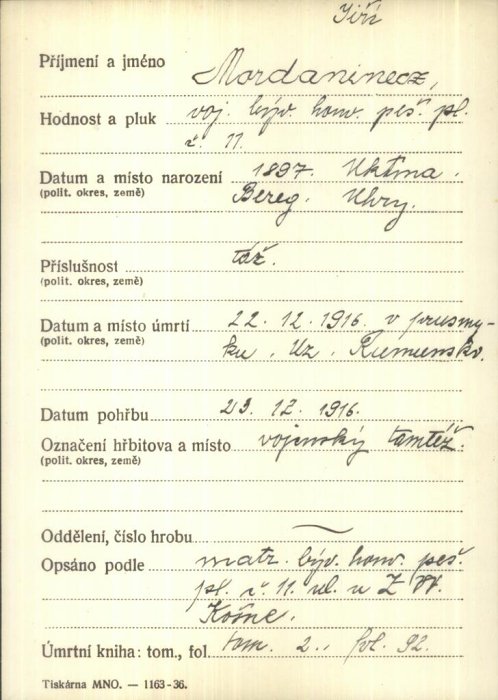 Jiří
Příjmení a jméno Mordaninecz,
Hodnost a pluk voj. býv. honv. peš. pl.
č. 11.
Datum a místo narození 1897. Uklina.
(polit. okres, země) Bereg. Uhry.
Příslušnost táž.
(polit. okres, země)
Datum a místo úmrtí 22. 12. 1916. v prusmy-
(polit. okres, země) ku. Uz. Rumunsko.
Datum pohřbu 23. 12. 1916.
Označení hřbitova a místo vojenský tamtéž.
(polit. okres, země)
Oddělení, číslo hrobu —
Opsáno podle matr. býv. honv. peš.
pl. č. 11. ul. u Z. VV.
Košice.
Úmrtní kniha: tom., fol. tom. 2., fol. 92.
Tiskárna MNO. — 1163-36.